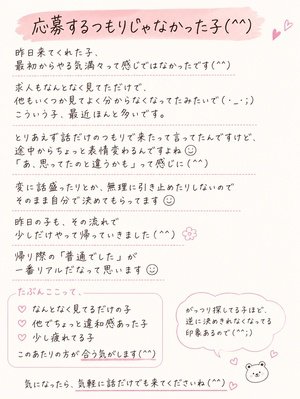 応募するつもりじゃなかった子(^^)
昨日来てくれた子、
最初からやる気満々って感じではなかったです(^^)
求人もなんとなく見てただけで、
他もいくつか見てよく分からなくなってたみたいで(・_・;)
こういう子、最近ほんと多いです。
とりあえず話だけのつもりで来たって言ってたんですけど、
途中からちょっと表情変わるんですよね☺
「あ、思ってたのと違うかも」って感じに(^^)
変に話盛ったりとか、無理に引き止めたりしないので
そのまま自分で決めてもらってます☺
昨日の子も、その流れで
少しだけやって帰っていきました(^^)
帰り際の「普通でした」が
一番リアルだなって思います☺
たぶんここって、
♡ なんとなく見てるだけの子
♡ 他でちょっと違和感あった子
♡ 少し疲れてる子
このあたりの方が 合う気がします(^^)
がっつり探してる子ほど、
逆に決めきれなくなってる
印象あるので(^^;)
気になったら、気軽に話だけでも来てくださいね(^^)